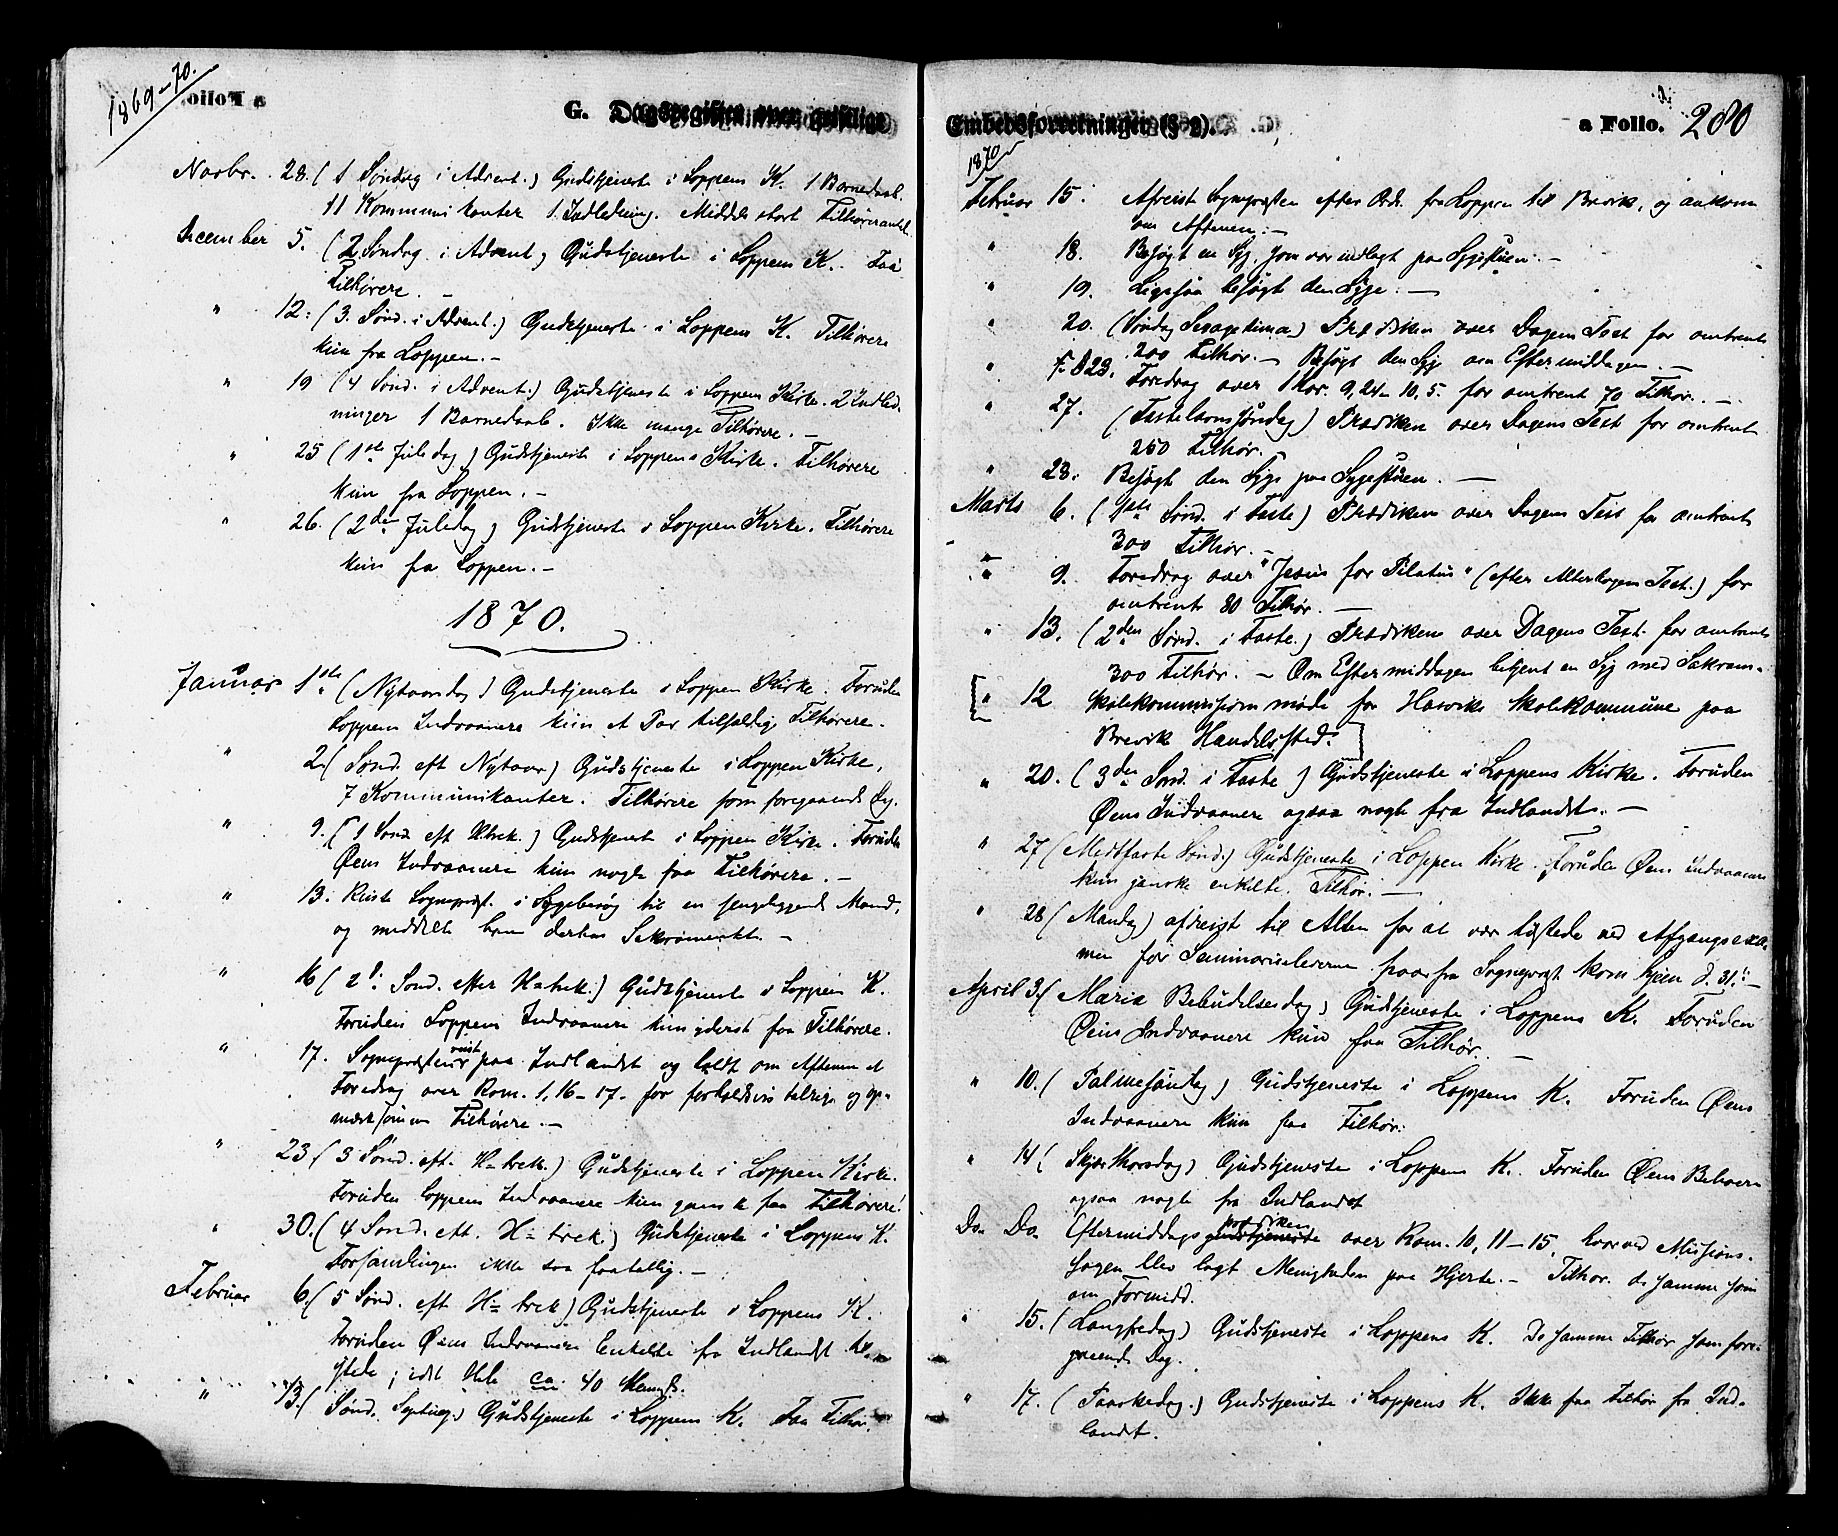 1869-70.
a Folio.
G. Dagsregister over geistlige
Novbr. 28. (1 Søndag i Advent.) Gudstjeneste i Loppens K. 1 Barnedaab.
11 Kommunikanter 1 Indledning. Middels stort Tilhørerantal.
December 5. (2 Søndag i Advent) Gudstjeneste i Loppens K. Faa
Tilhørere. -
" 12. (3. Sønd. i Advent.) Gudstjeneste i Loppens K. Tilhørere
kun fra Loppen. -
" 19 (4 Sønd. i Advent.) Gudstjeneste i Loppens Kirke. 2 Indled-
ninger 1 Barnedaab. Ikke mange Tilhørere. -
" 25 (1ste Juledag) Gudstjeneste i Loppens Kirke. Tilhørere
kun fra Loppen. -
" 26. (2den Juledag) Gudstjeneste i Loppen Kirke. Tilhørere
kun fra Loppen. -
1870.
Januar 1ste (Nytaarsdag) Gudstjeneste i Loppen Kirke. Foruden
Loppens Indvaanere kun et Par tilfældig Tilhørere.
" 2. (Sønd. eft Nytaar) Gudstjeneste i Loppen Kirke,
7 Kommunikanter. Tilhørere som foregaaende Dg.
" 9. (1 Sønd eft Htrek.) Gudstjenest i Loppen Kirke. Foruden
Øens Indvaanere kun nogle faa Tilhørere. -
" 13. Reiste Sognepræst. i Sygebesøg til en sengeliggende Mand,
og meddelte ham derhos Sakramentet. -
" 16 (2d. Sønd. efter H-trek.) Gudstjeneste i Loppens K.
Foruden Loppens Indvaanere kun yderst faa Tilhørere.
" 17. Sognepræsten reist paa Indlandet og holdt om Aftenen et
Foredrag over Rom. 1, 16-17. for forholdsvis talrige og op-
mærksomme Tilhørere. -
" 23. (3 Sønd. eft. H-trek.) Gudstjeneste i Loppen Kirke.
Foruden Loppens Indvaanere kun ganske faa Tilhørere.
" 30. (4 Sønd. eft. H-trek.) Gudstjeneste i Loppens K.
Forsamlingen ikke saa faatallig. -
Februar 6. (5 Sønd. eft H-trek) Gudstjeneste i Loppens K.
Foruden Øens Indvaanere Enkelte fra Indlandet til
stede; idet Hele ca. 40 Mennsk.
" 13. (Sønd. Septuag.) Gudstjeneste i Loppens K. Faa Tilhør.
Embedsforretninger (§ 2).
a Folio. 280
1870
Februar 15. Afreist Sognepræsten efter Ordr. fra Loppen til Brevik, og ankom
om Aftenen. -
" 18. Besøgt en Syg, som var indlagt paa Sygestuen. -
" 19. Ligesaa besøgt den Syge. -
" 20. (Søndag Sexagesima) Prædiken over Dagens Text for omtrent
200 Tilhør. - Besøgt den Syg om Eftermiddagen. -
" 23. Foredrag over 1 Kor. 9, 24 - 10, 5. for omtrent 70 Tilhør. -
" 27. (Fastelavnssøndag) Prædiken over Dagens Text for omtrent
250 Tilhør.
" 28. Besøgt den Syge paa Sygestuen. -
Marts 6. (1ste Sønd. i Faste) Prædiken over Dagens Text for omtrent
300 Tilhør. -
" 9. Foredrag over "Jesus for Pilatus" (efter Alterbogens Text.) for
omtrent 80 Tilhør. -
" 13. (2den Sønd. i Faste.) Prædiken over Dagens Text. for omtrent
300 Tilhør. - Om Eftermiddagen betjent en Syg med Sakram-
[" 12 Skolekommissionsmøde for Hasviks Skolekommune paa
Brevik Handelssted.]
" 20. (3den Sønd. i Faste) Gudstjeneste i Loppens Kirke. Foruden
Øens Indvaanere ogsaa nogle fra Indlandet. -
" 27 (Midtfaste Sønd.) Gudstjeneste i Loppen Kirke. Foruden Øens Indvaanere
kun ganske enkelte Tilhør. -
" 28 (Mandag) afreist til Alten for at vær tilstede ved Afgangsexa-
men for Seminarieleverne hvorfra Sognepræst. kom hjem d. 31. -
April 3. (Maria Bebudelsesdag) Gudstjeneste i Loppens K. Foruden
Øens Indvaanere kun faa Tilhør. -
" 10. (Palmesøndag) Gudstjeneste i Loppens K. Foruden Øens
Indvaanere kun faa Tilhør.
" 14 (Skjærthorsdag) Gudstjeneste i Loppens K. Foruden Øens Beboere
ogsaa nogle fra Indlandet
Do. Do. Eftermiddags gudstjeneste prædiken over Rom. 10, 11-15, hvorved Missions-
sagen blev lagt Menigheden paa Hjerte. - Tilhør. de samme som
om Formidd.
" 15. (Langfredag) Gudstjeneste i Loppens K. De samme Tilhør som fore-
gaaende Dag.
" 17. (Paaskedag.) Gudstjeneste i Loppens K. Ikke faa Tilhør fra Ind-
landet.